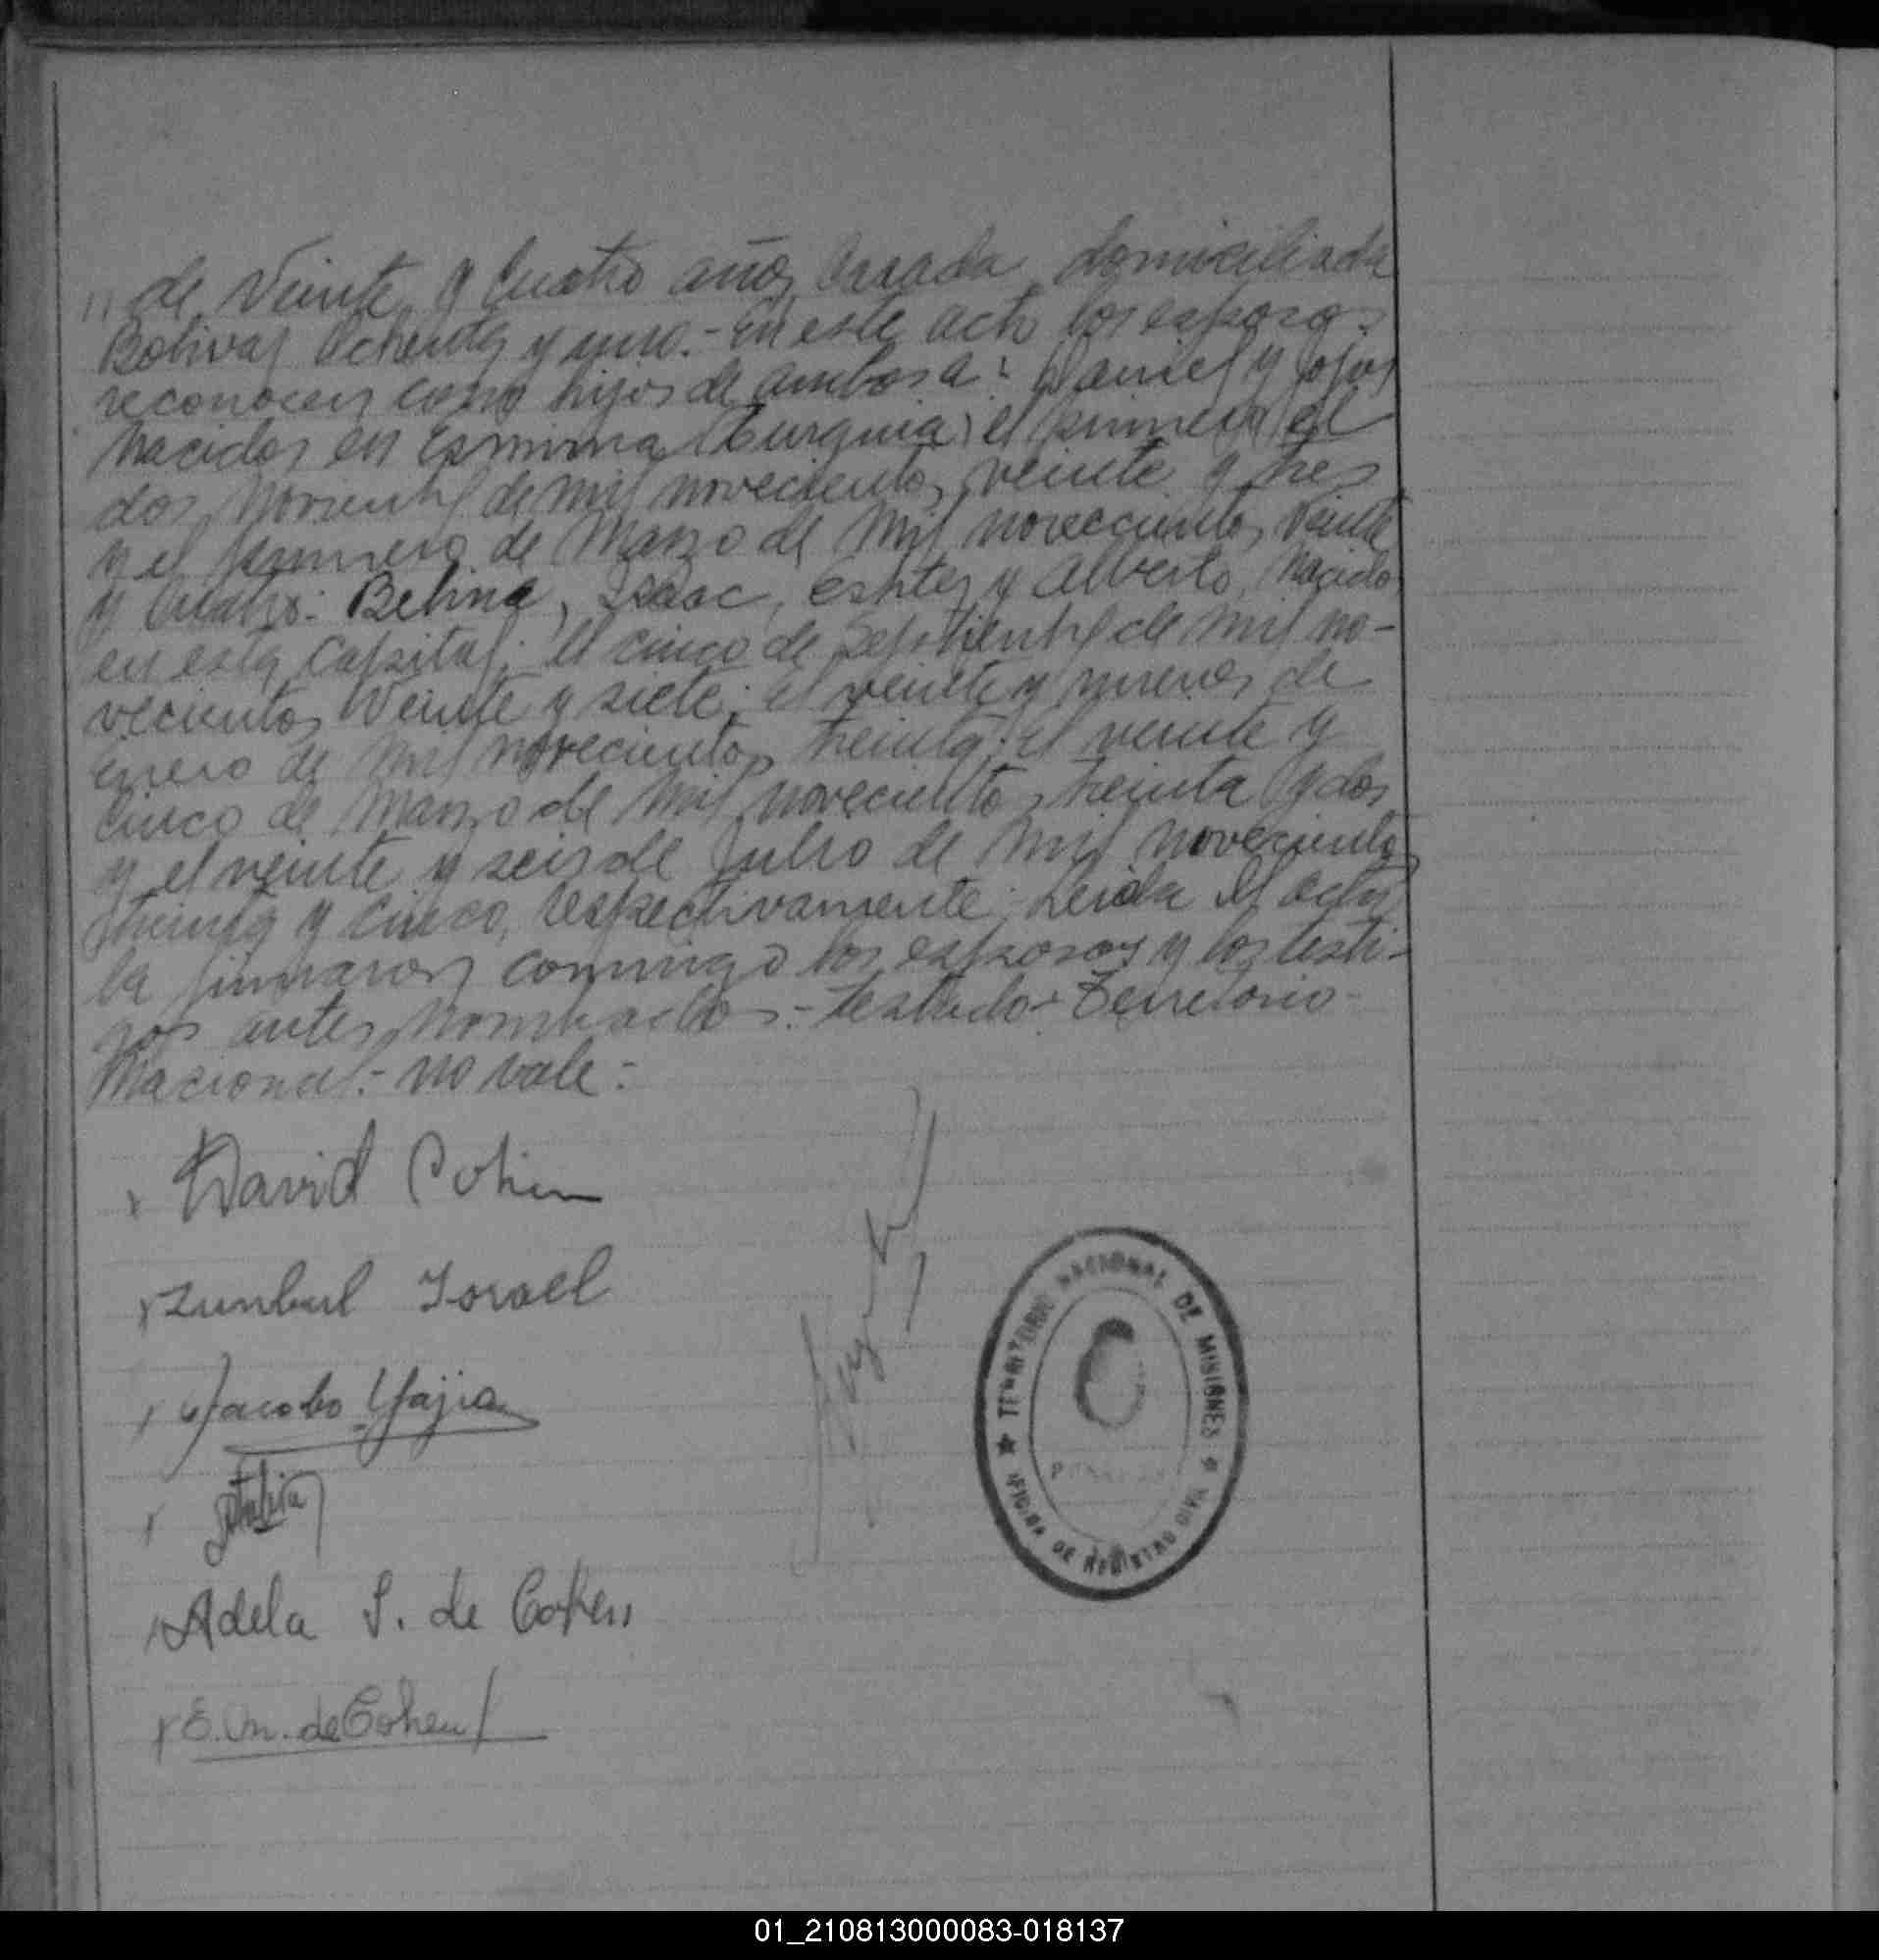 // de Veinte y Cuatro años, Casada, domiciliada
Bolivar Ochenta y uno.- En este acto los esposos
reconocen como hijos de ambos a: Daniel y
nacidos en Esmirna (Turquia) el primero el
dos Noviembre de mil novecientos veinte y tres
y el primero de Marzo de Mil novecientos Veinte
y Cuatro: Belina, Isaac, Ester y Alberto, Nacidos
en esta Capital; el cinco de Septiembre de mil no-
vecientos Veinte y siete; el veinte y nueve de
Enero de Mil novecientos treinta; el veinte y
Cinco de Marzo de Mil novecientos treinta y dos
y el veinte y seis de Julio de Mil Novecientos
treinta y Cinco, respectivamente. Leida el acta
la firmaron conmigo los esposos y los testi-
gos antes Nombrados.- Testado: Territorio
Nacional.- no vale:
David Cohen
Zunbul Israel
Jacobo Yajia
Adela S. de Cohen
E. M. de Cohen
TERRITORIO NACIONAL DE MISIONES
OFICINA DE REGISTRO CIVIL
01_210813000083-018137